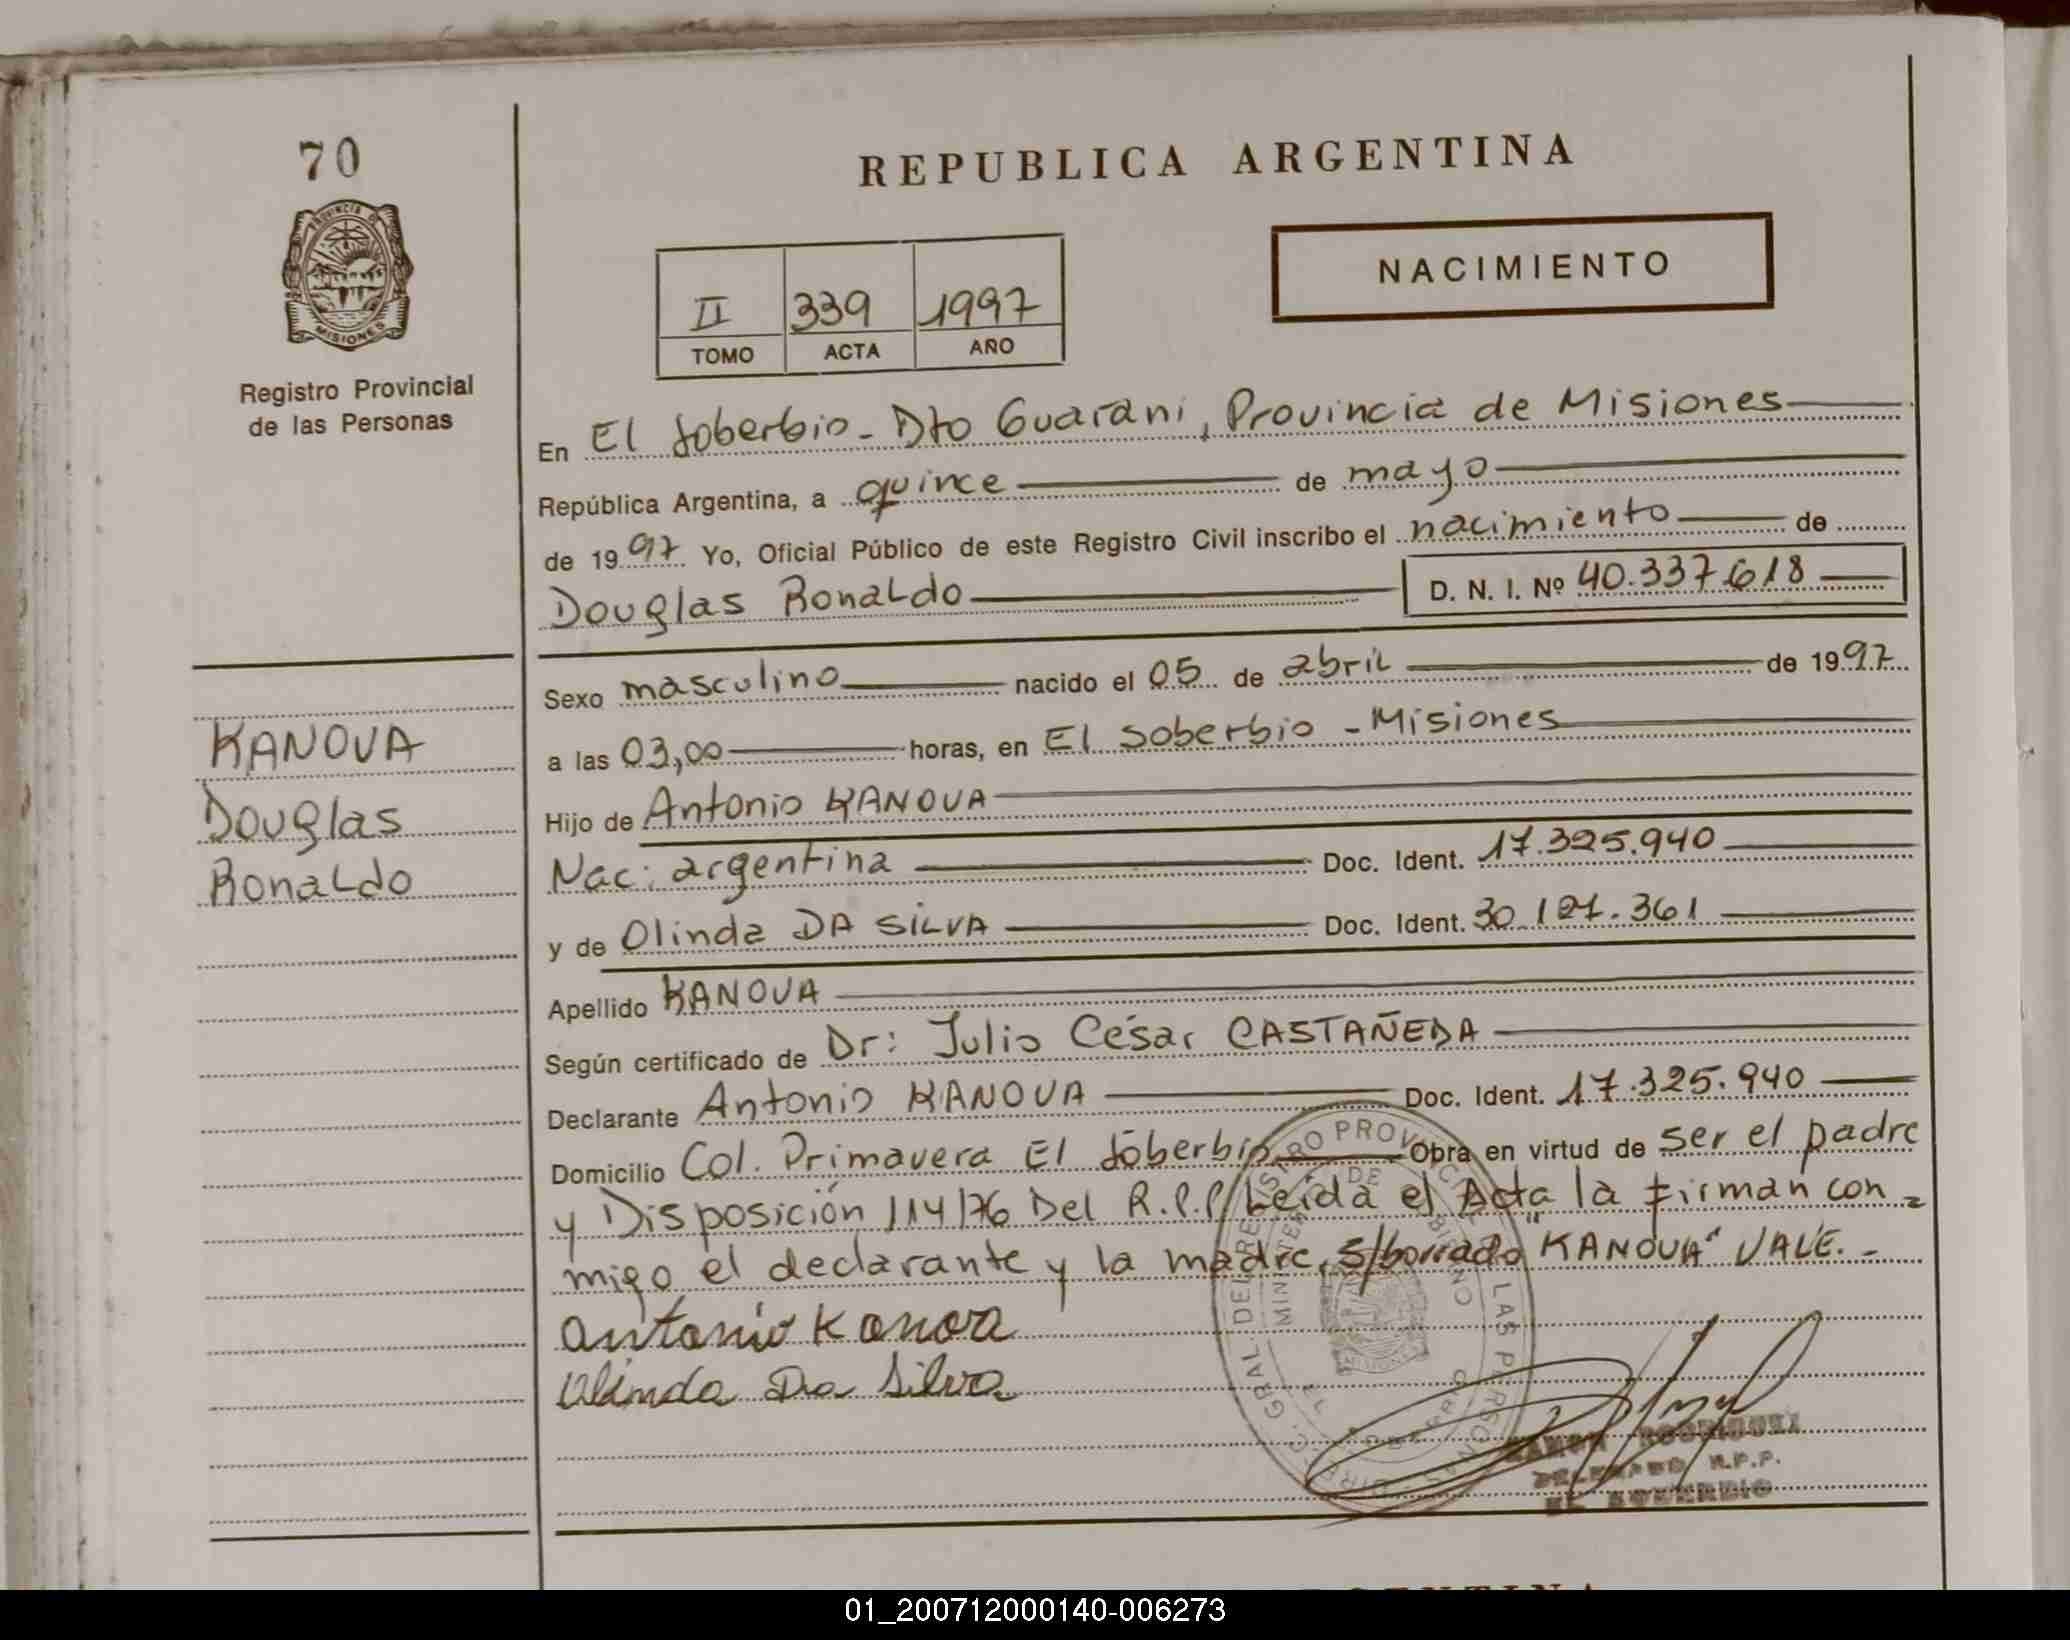 70
PROVINCIA DE
MISIONES
Registro Provincial
de las Personas
REPUBLICA ARGENTINA
NACIMIENTO
II 339 1997
TOMO ACTA AÑO
En El Soberbio - Dto Guaraní, Provincia de Misiones
República Argentina, a quince de mayo
de 1997 Yo, Oficial Público de este Registro Civil inscribo el nacimiento de
Douglas Ronaldo D. N. I. Nº 40.337.618
Sexo masculino nacido el 05 de abril de 1997
a las 03,00 horas, en El Soberbio - Misiones
Hijo de Antonio KANOVA
Nac: argentina Doc. Ident. 17.325.940
y de Olinda DA SILVA Doc. Ident. 30.127.361
Apellido KANOVA
Según certificado de Dr: Julio César CASTAÑEDA
Declarante Antonio KANOVA Doc. Ident. 17.325.940
Domicilio Col. Primavera El Soberbio Obra en virtud de ser el padre
y Disposición 114/76 Del R.P.P. Leída el Acta la firman con
migo el declarante y la madre, S/borrado "KANOVA" VALE. -
Antonio Kanova
Olinda Da Silva
KANOVA
Douglas
Ronaldo
RAMON RODRIGUEZ
DELEGADO R.P.P.
EL SOBERBIO
01_200712000140-006273